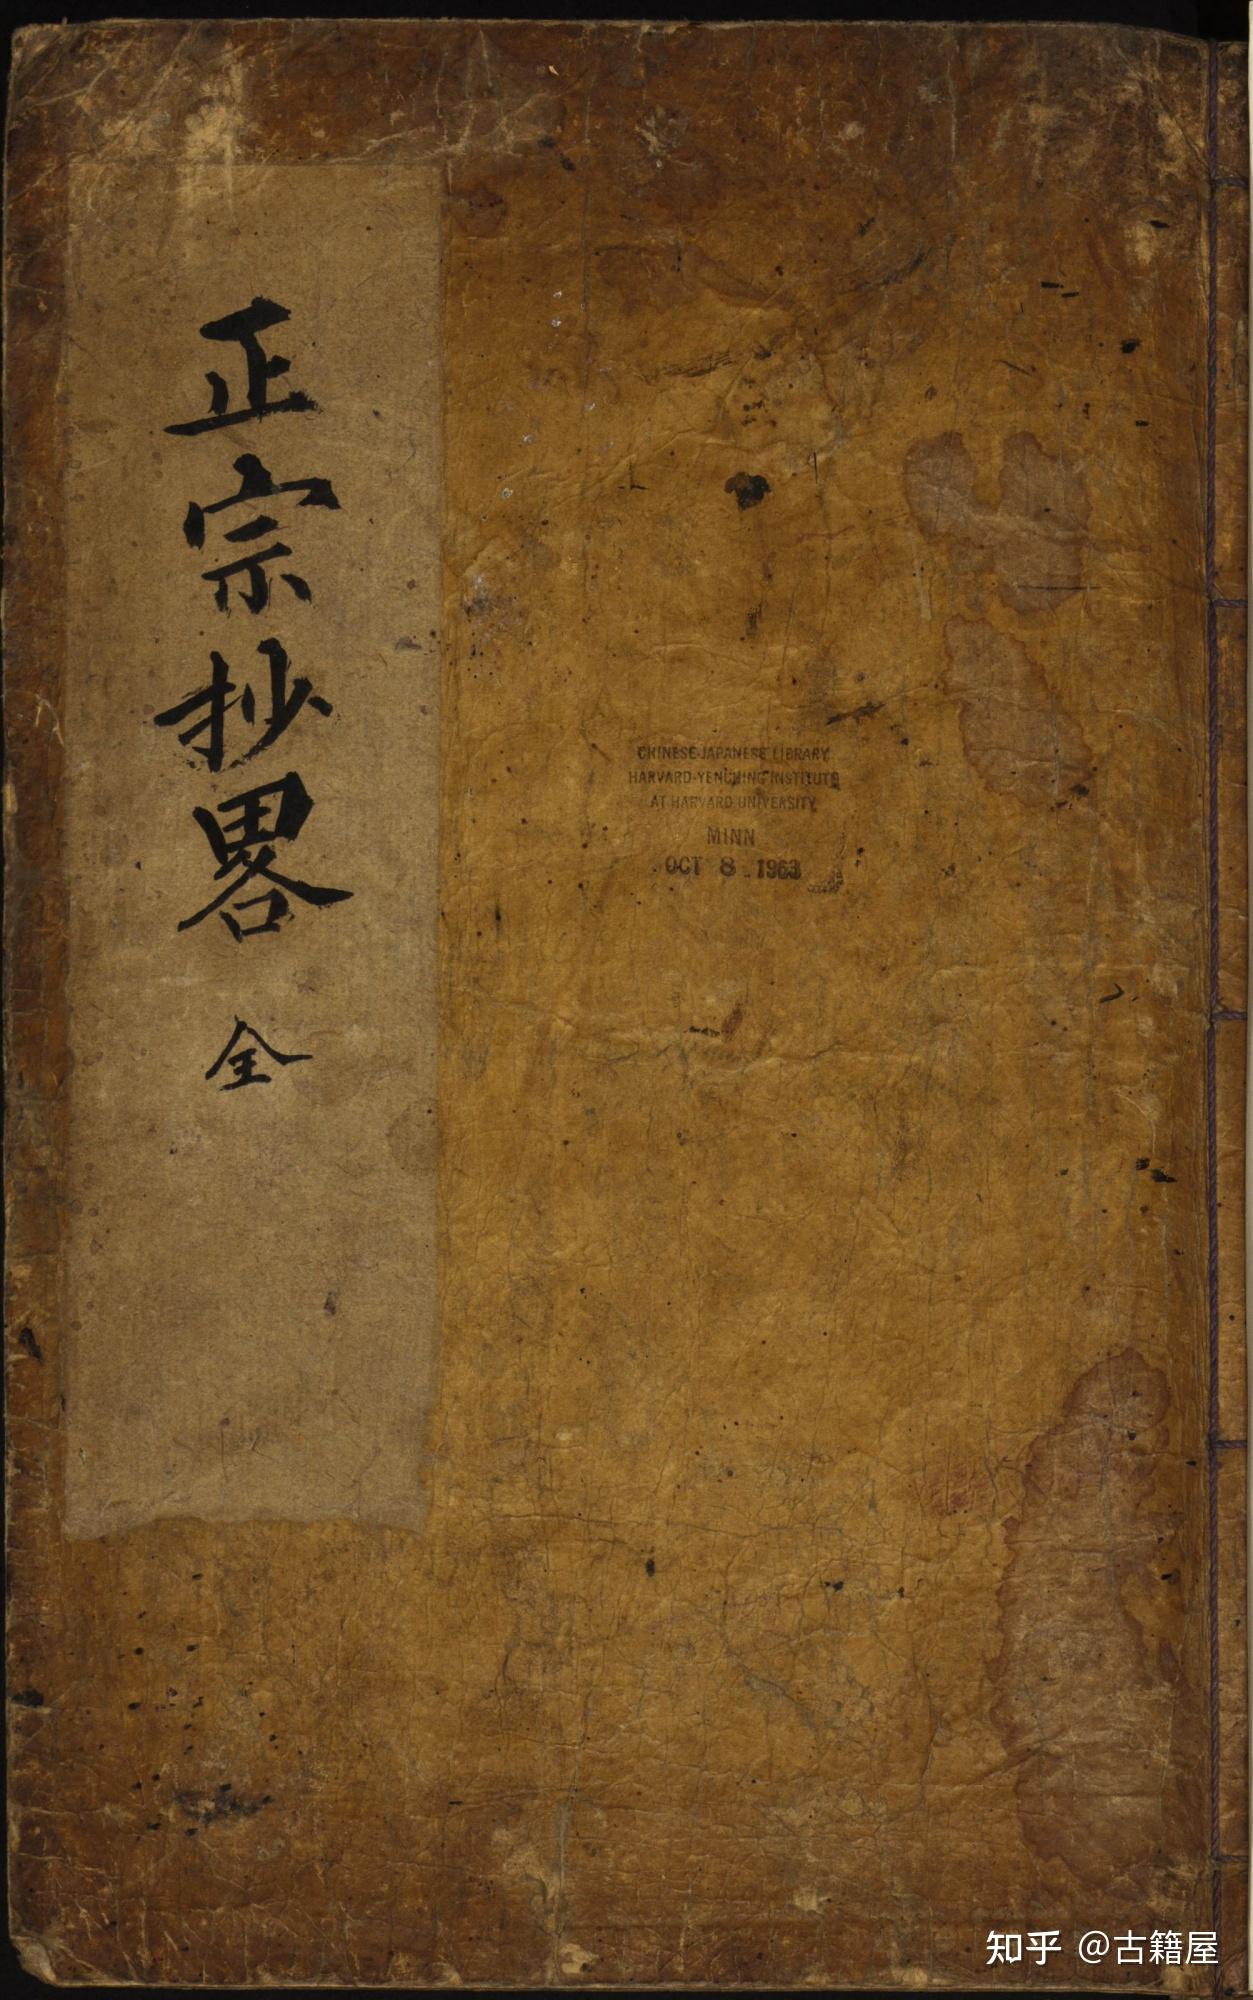 正宗抄畧 全
CHINESE-JAPANESE LIBRARY
HARVARD-YENCHING INSTITUTE
AT HARVARD UNIVERSITY
MINN
OCT 8 . 1963
知乎 @古籍屋